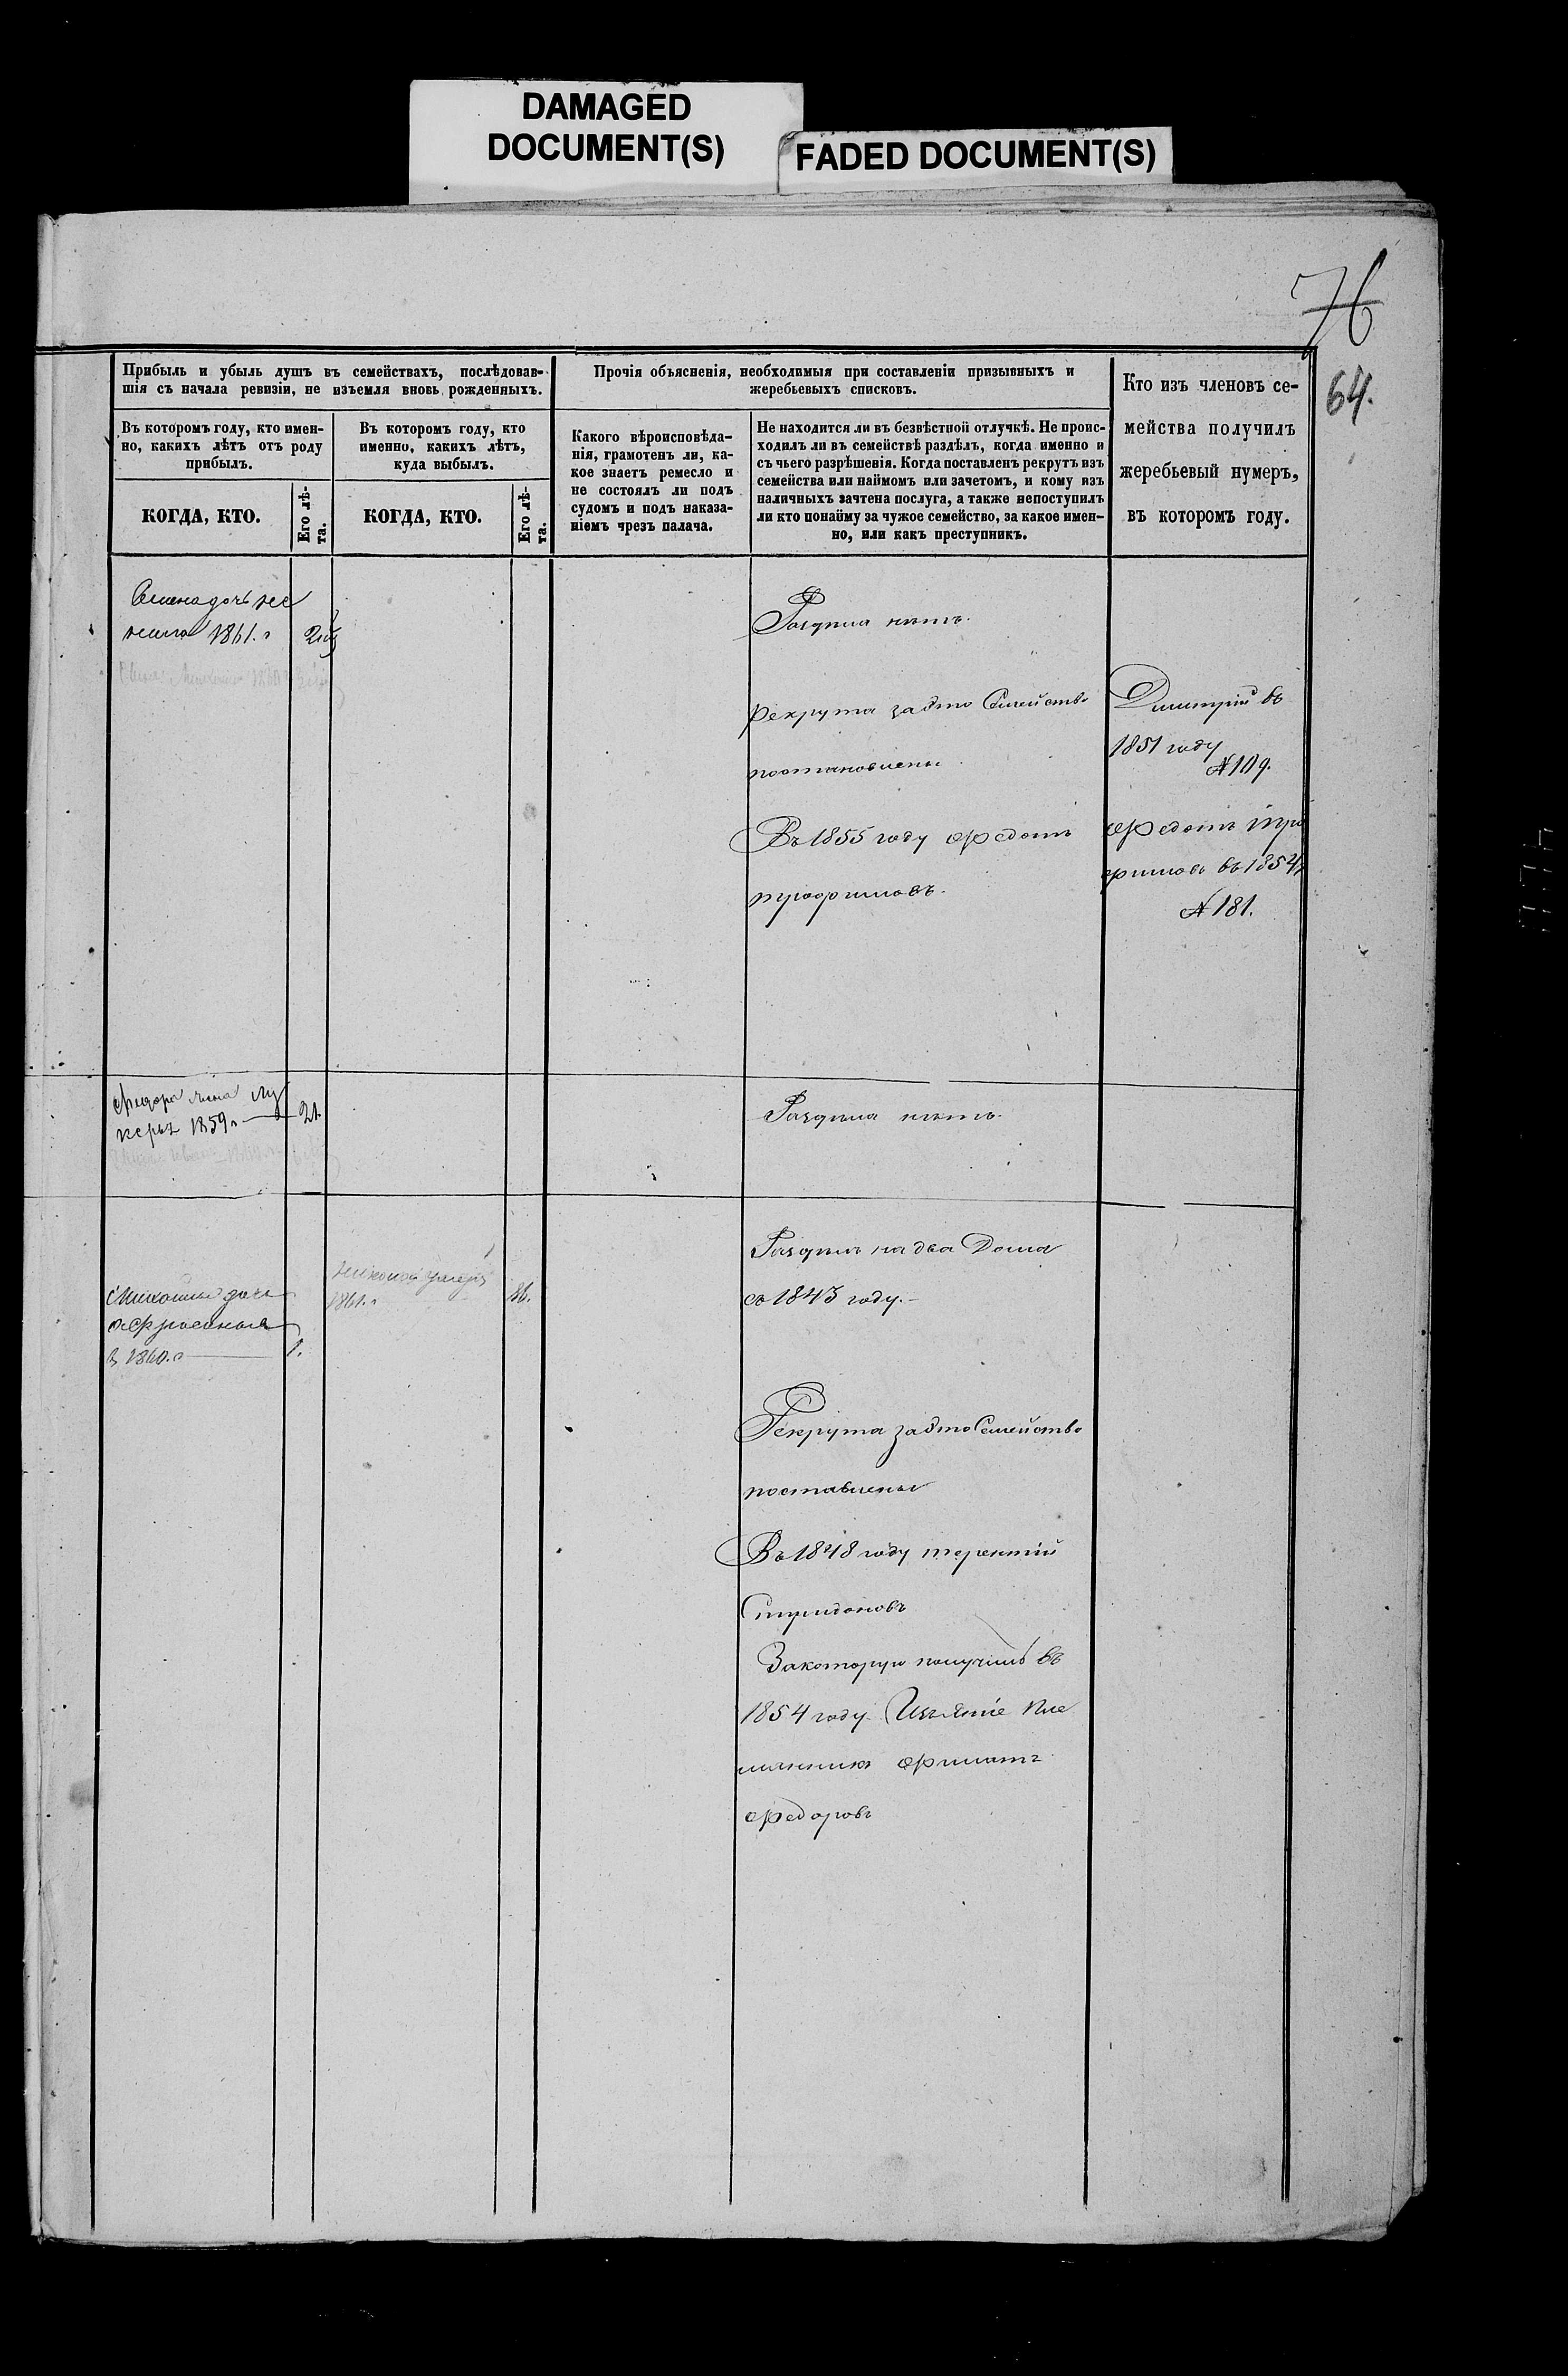 DAMAGED
DOCUMENT(S)
FADED DOCUMENT(S)
76
64.
Прибыль и убыль душъ въ семействахъ, послѣдовав-
шія съ начала ревизіи, не изъемля вновь рожденныхъ.
Въ которомъ году, кто имен-
но, какихъ лѣтъ отъ роду
прибылъ.
КОГДА, КТО.
Его лѣ-
та.
Въ которомъ году, кто
именно, какихъ лѣтъ,
куда выбылъ.
КОГДА, КТО.
Его лѣ-
та.
Прочія объясненія, необходимыя при составленіи призывныхъ и
жеребьевыхъ списковъ.
Какого вѣроисповѣда-
нія, грамотенъ ли, ка-
кое знаетъ ремесло и
не состоялъ ли подъ
судомъ и подъ наказа-
ніемъ чрезъ палача.
Не находится ли въ безвѣстной отлучкѣ. Не проис-
ходилъ ли въ семействѣ раздѣлъ, когда именно и
съ чьего разрѣшенія. Когда поставленъ рекрутъ изъ
семейства или наймомъ или зачетомъ, и кому изъ
наличныхъ зачтена послуга, а также непоступилъ
ли кто понайму за чужое семейство, за какое имен-
но, или какъ преступникъ.
Кто изъ членовъ се-
мейства получилъ
жеребьевый нумеръ,
въ которомъ году.
1861. г
Раздѣла нѣтъ.
Рекрута за это Семейство
постановлены
Въ 1855 году Федотъ
трофимовъ.
Димитрій въ
1851 году
№ 109.
Федотъ тро
фимовъ въ 1854
№ 181.
1859 г 21.
Раздѣла нѣтъ.
дочь
въ 1860. г 1.
1861. г 36.
Раздѣлъ на два Дома
съ 1843 году.
Рекрута за это Семейство
поставлены
Въ 1848 году терентій
Спиридоновъ
За которую получилъ въ
1854 году Изъятіе Пле
мянникъ Филатъ
Федоровъ